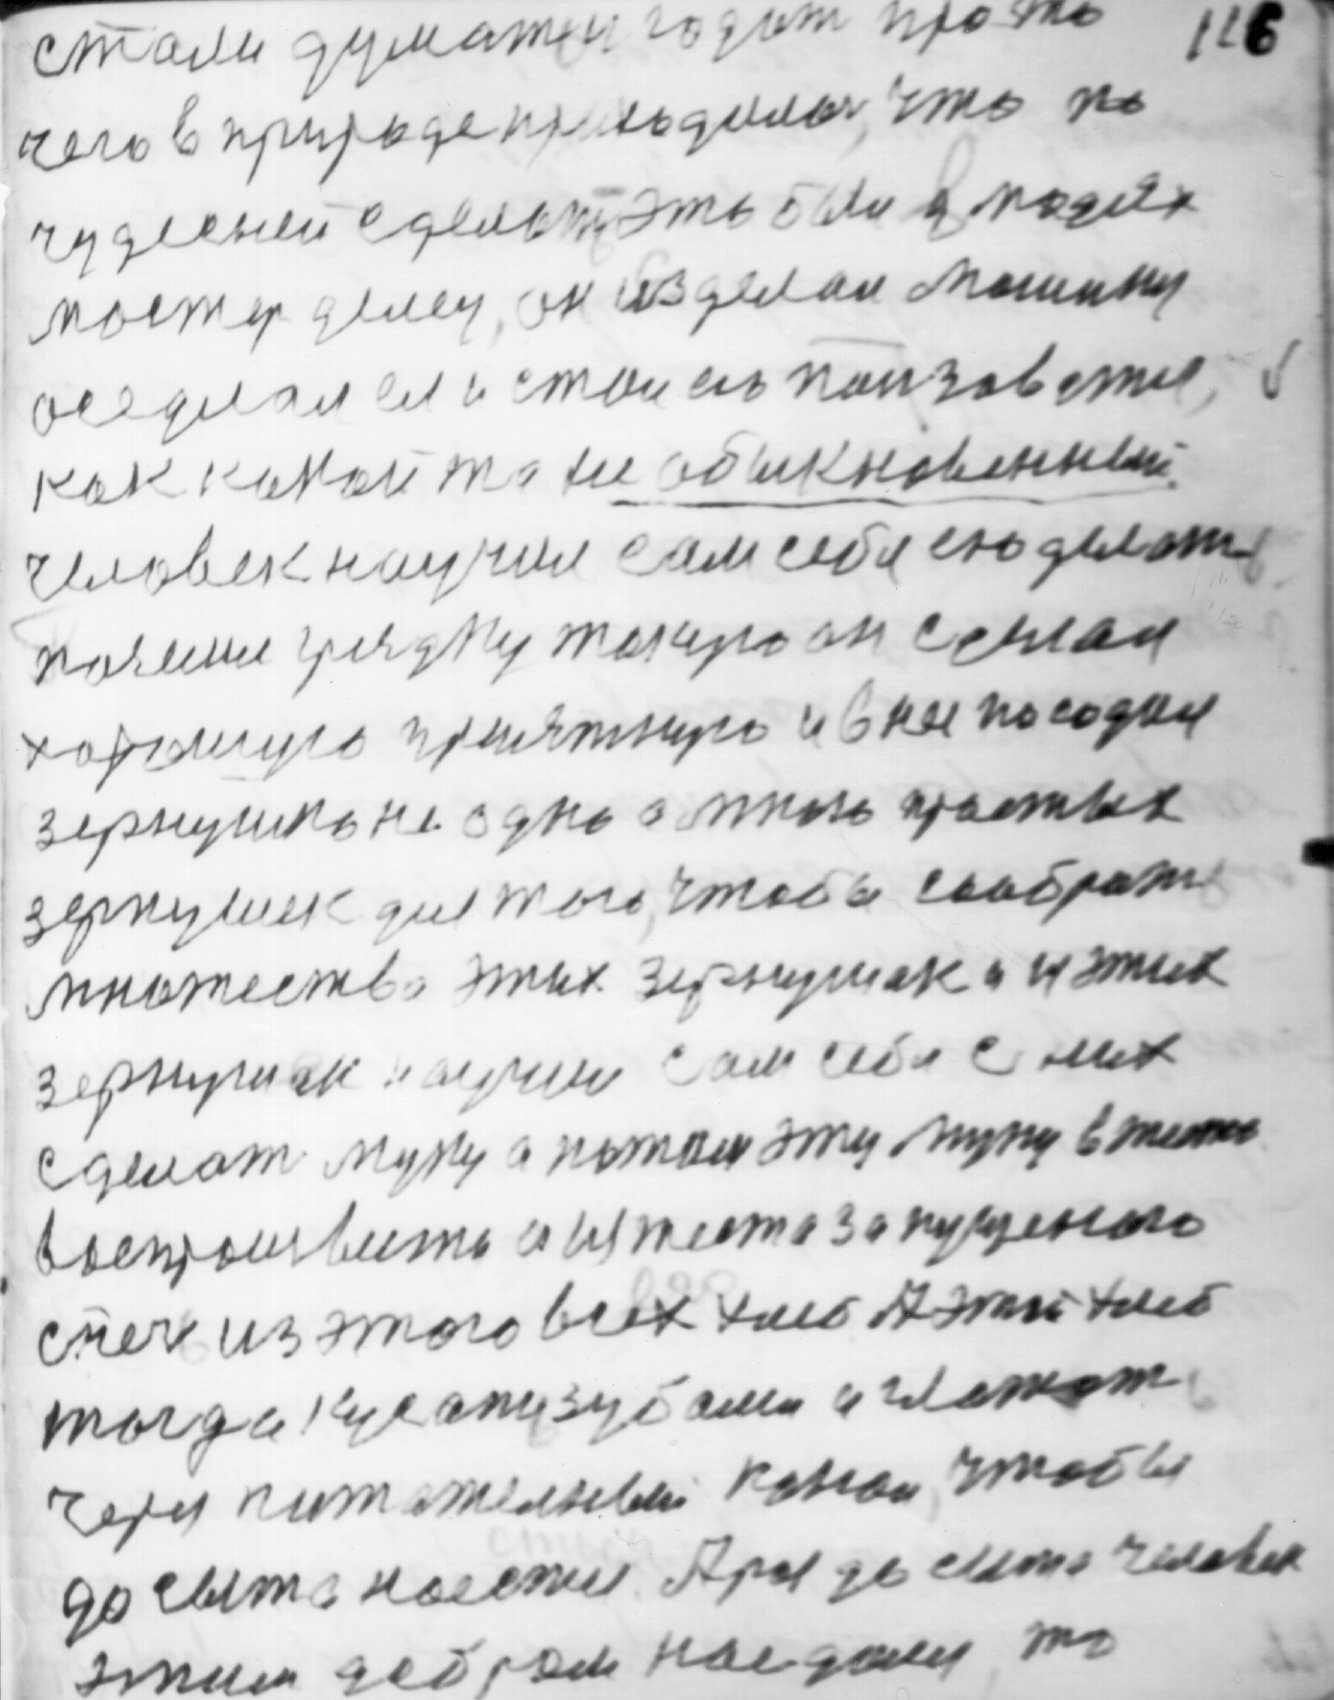 стали думат и гадат про то 116
чего в природе приходилось, что по
чудесней сделать это был в людях
мастер делец, он изделал машину
оседлал ея и стал ею ползоватся,
как какой то не обыкновенный
человек научил сам себя ею делать
пахаль грядку такую он сделал
хорошую приятную и в нее посадил
зернушко не одно а много простых
зернушек для того, чтобы сообрать
множество этих зернушак а и этих
зернушак научил сам себя с них
сделат муку а потом эту муку в тесто
воспроизвести а из теста запущеного
спечь из этого всех хлеб А этот хлеб
тогда кусать зубами и глотать
через питателный канал, чтобы
до сыта наестся. А раз до сыта человек
этим добром наедался, то